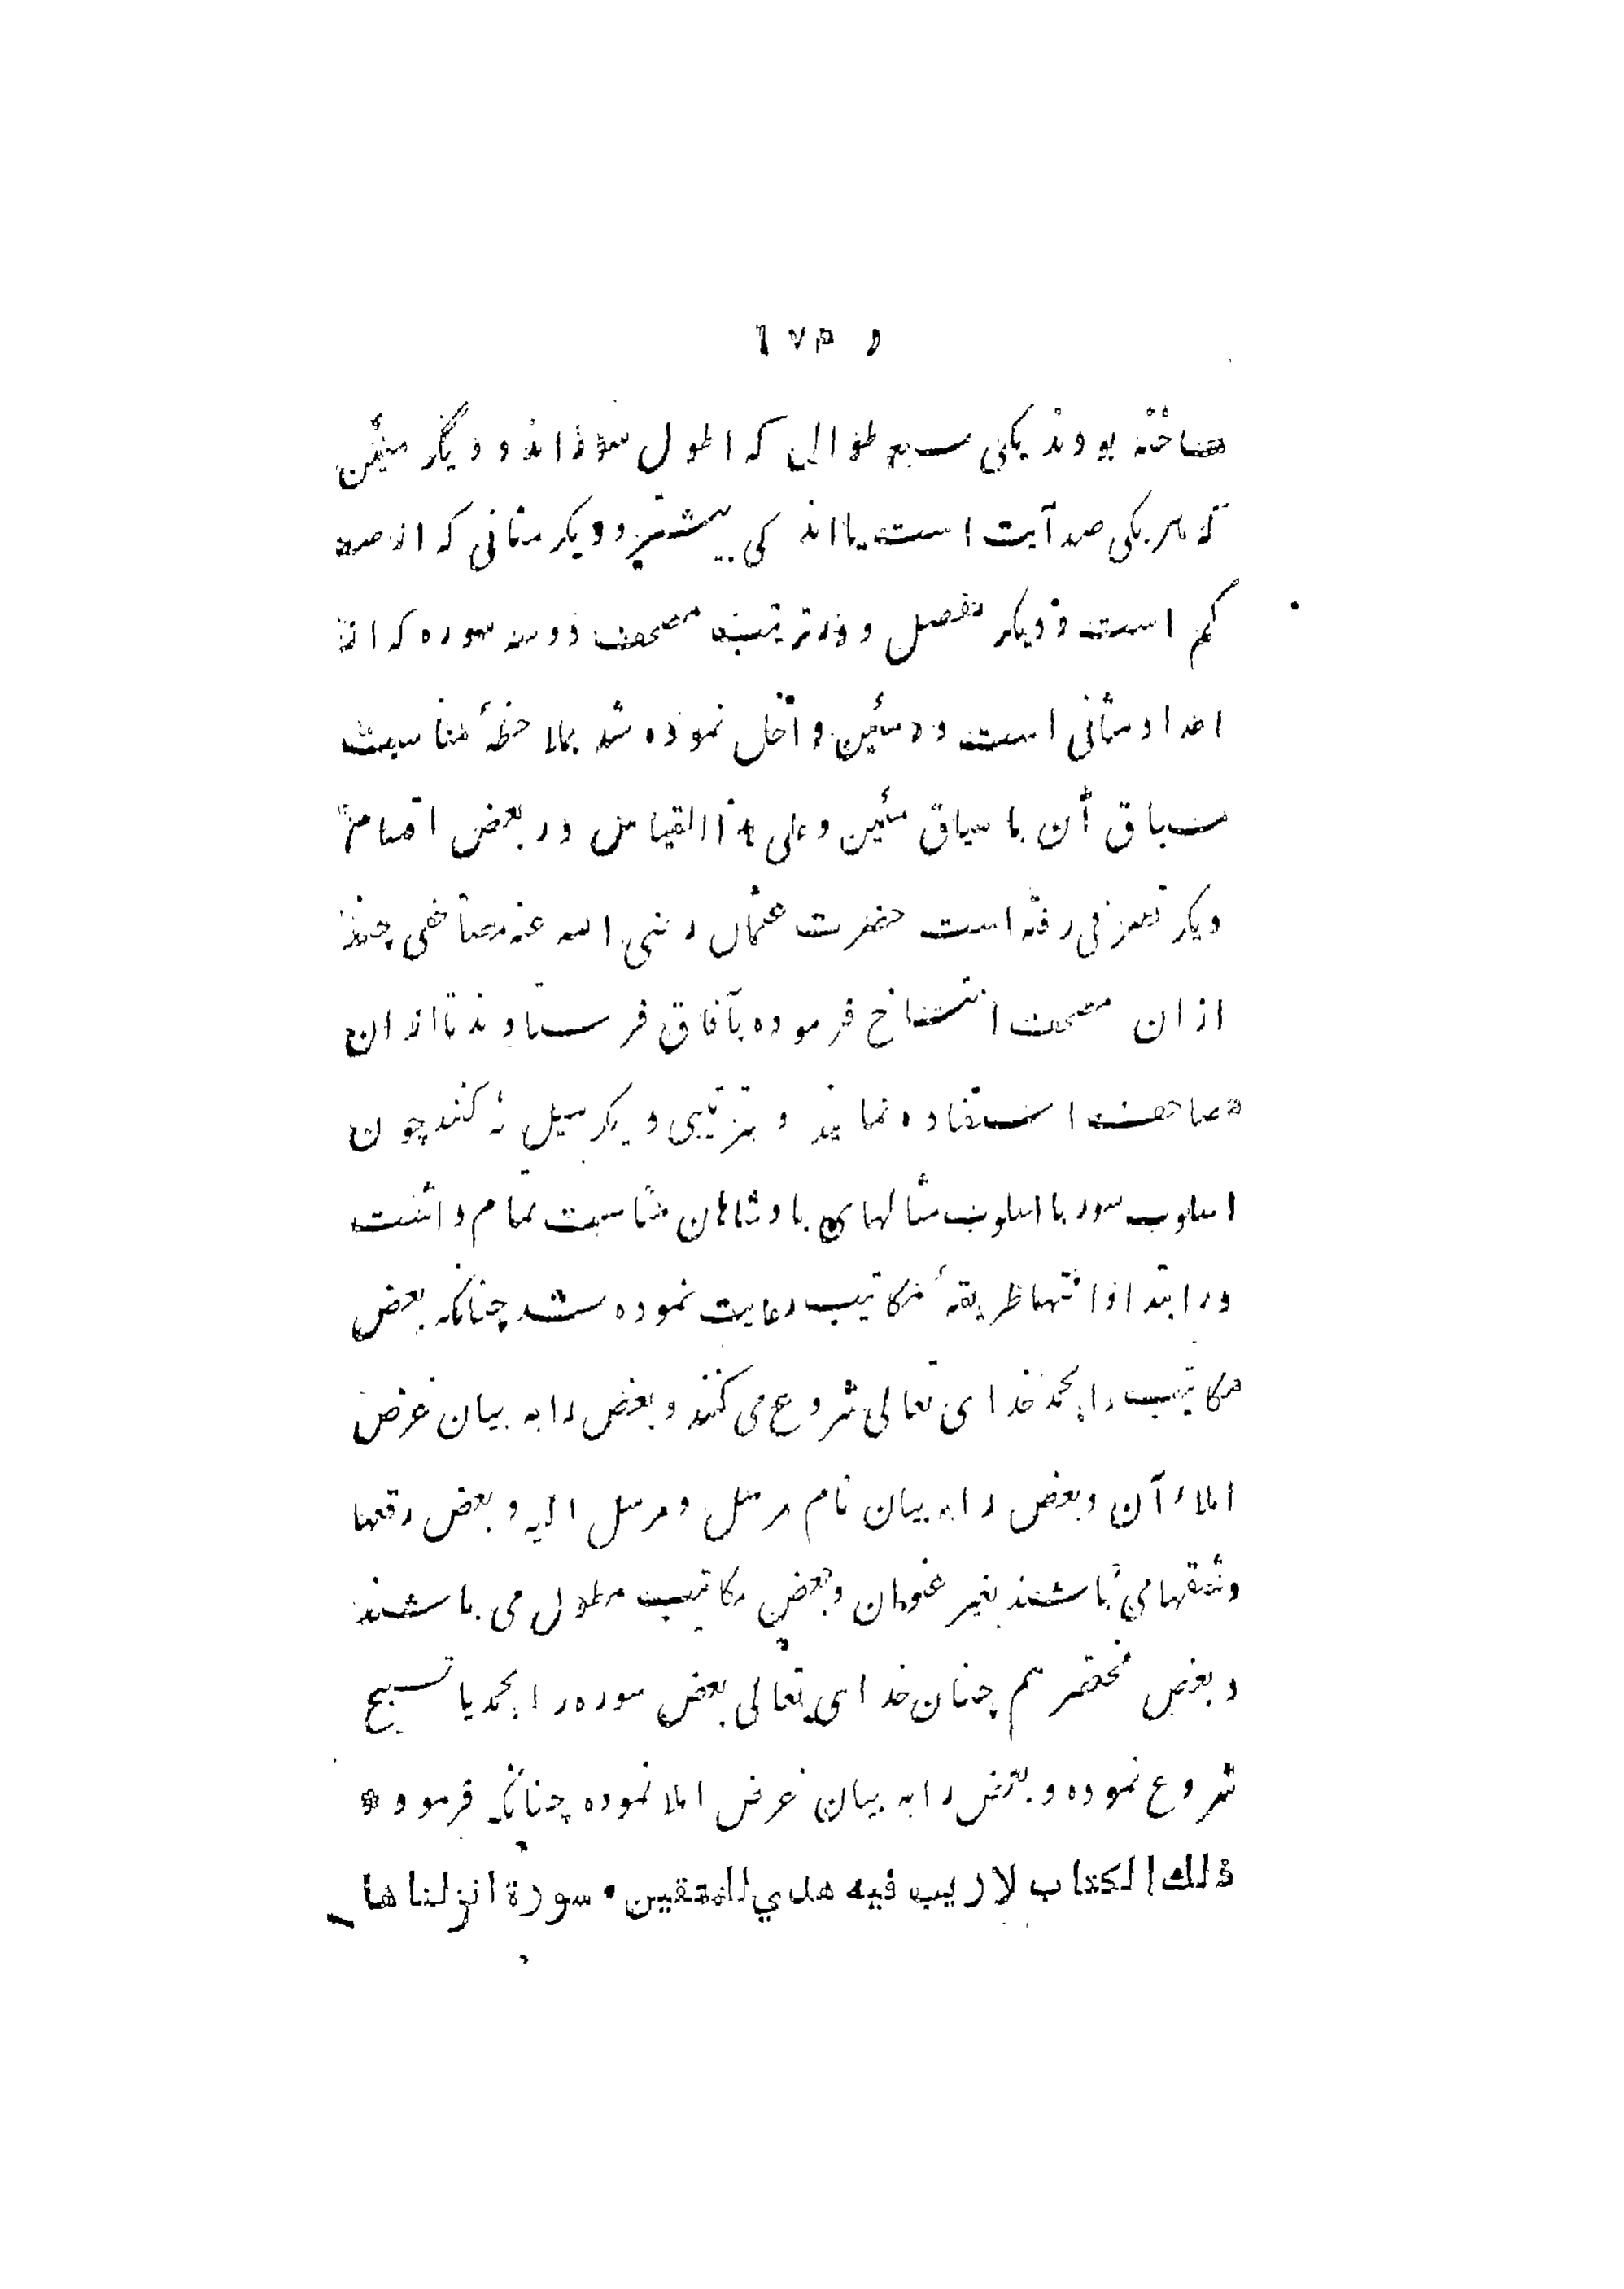 ساخته بودند یکی سبع طوال که اطول سور اند و دیگر مئین
که هر یکی صد آیت است یا اند کی بیشتر و دیگر مثانی که از صد
کم است و دیگر مفصل و در ترتیب مصحف دو سه سوره که از
اعداد مثانی است در مئین داخل نموده شد بملاحظهٔ مناسبت
سیاق آن با سیاق مئین و علی هذا القیاس در بعض اقسام
دیگر تصرفی رفته است حضرت عثمان رضی الله عنه مصاحفی چند
ازان مصحف انتساخ فرموده بآفاق فرستادند تا ازان
مصاحف استفاده نمایند و بترتیبی دیگر میل نه کنند چون
اسلوب سور با اسلوب مثالهای بادشاهان مناسبت تمام داشت
در ابتدا و انتها طریقهٔ مکاتیب رعایت نموده شد چنانکه بعض
مکاتیب را بحمد خدای تعالی شروع می کنند و بعض را به بیان غرض
املاء آن و بعض را به بیان نام مرسل و مرسل الیه و بعض رقعها
و شقها می باشند بغیر عنوان و بعض مکاتیب مطول می باشند
و بعض مختصر هم چنان خدای تعالی بعض سوره را بحمد یا تسبیح
شروع نموده و بعض را به بیان غرض املا نموده چنانکه فرمود *
ذلك الكتاب لا ريب فيه هدي للمتقين • سورة انزلناها